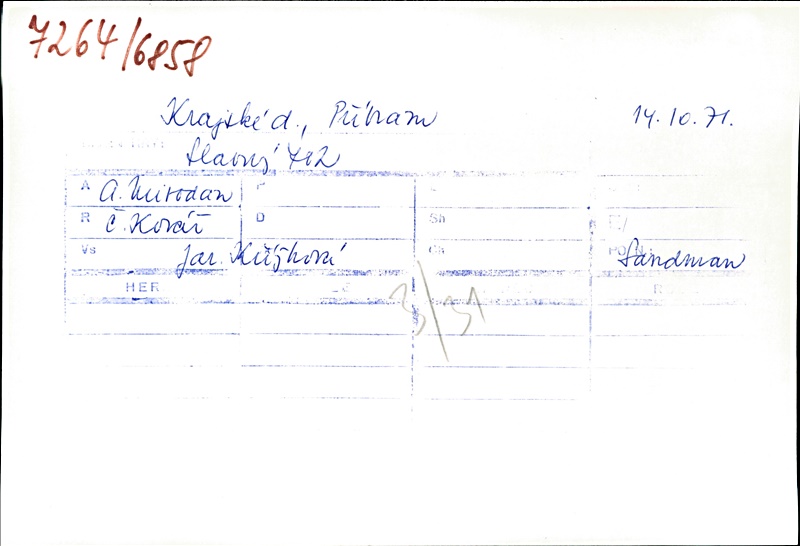 7264/6858
Krajské d., Příbram 14.10.71.
Slavný 702
A A. Mirodan
R Č. Kovář D Sh
Vs Jar. Ch Sandman
HER
3/31